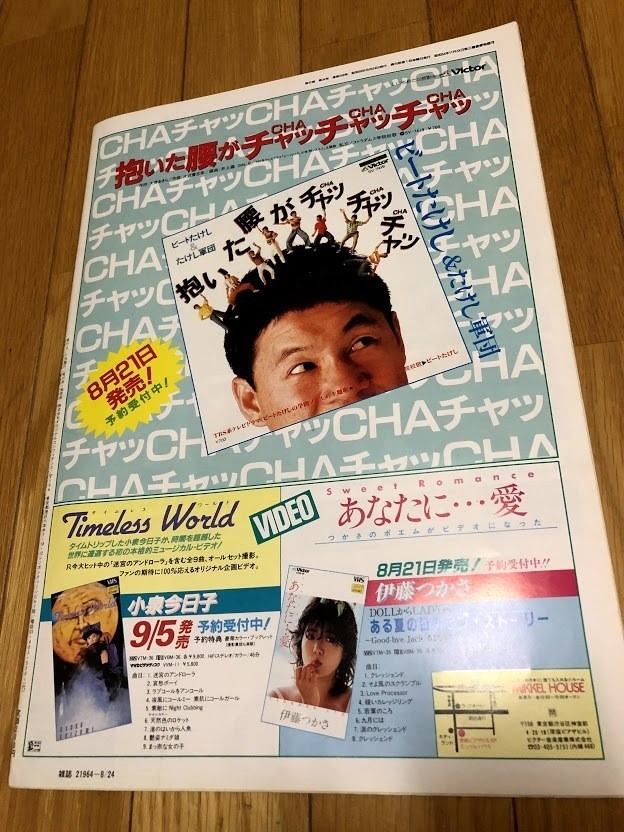 Victor
CHAチャッCHAチャッCHAチャッCHA
抱いた腰がチャッチャッチャッ
CHA CHA CHA
ビートたけし&たけし軍団
Victor
ビートたけし
&
たけし軍団
抱いた腰がチャッチャッチャッ
CHA CHA CHA
TBS系テレビドラマ「ビートたけしの学問ノススメ」主題歌
¥700
8月21日
発売!
予約受付中!
タイムレス ワールド
Timeless World
タイムトリップした小泉今日子が、時間を超越した
世界に遭遇する初の本格的ミュージカル・ビデオ!
只今大ヒット中の「迷宮のアンドローラ」を含む全9曲、オールセット撮影。
ファンの期待に100%応えるオリジナル企画ビデオ。
VIDEO
Sweet Romance
あなたに…愛
つかさのポエムがビデオになった
VHS
Timeless World
KYOKO KOIZUMI
小泉今日子
9/5発売
予約受付中!
予約特典
曲目:1.迷宮のアンドローラ
2.哀愁ボーイ
3.ラブコールをアンコール
4.夜風にコールミー 素肌にコールガール
5.素敵に Night Clubbing
6.天然色のロケット
7.渚のはいから人魚
8.艶姿ナミダ娘
9.まっ赤な女の子
VHS
あなたに…愛
伊藤つかさ
8月21日発売!
予約受付中!!
伊藤つかさ
DOLLからLADY
ある夏の日
ストーリー
曲目:
1.クレッシェンド
2.そよ風のスクランブル
3.Love Processor
6.九月には
7.涙のクレッシェンド
8.クレッシェンド
NIKKEL HOUSE
〒150 東京都渋谷区神宮前
雑誌 21964-8/24